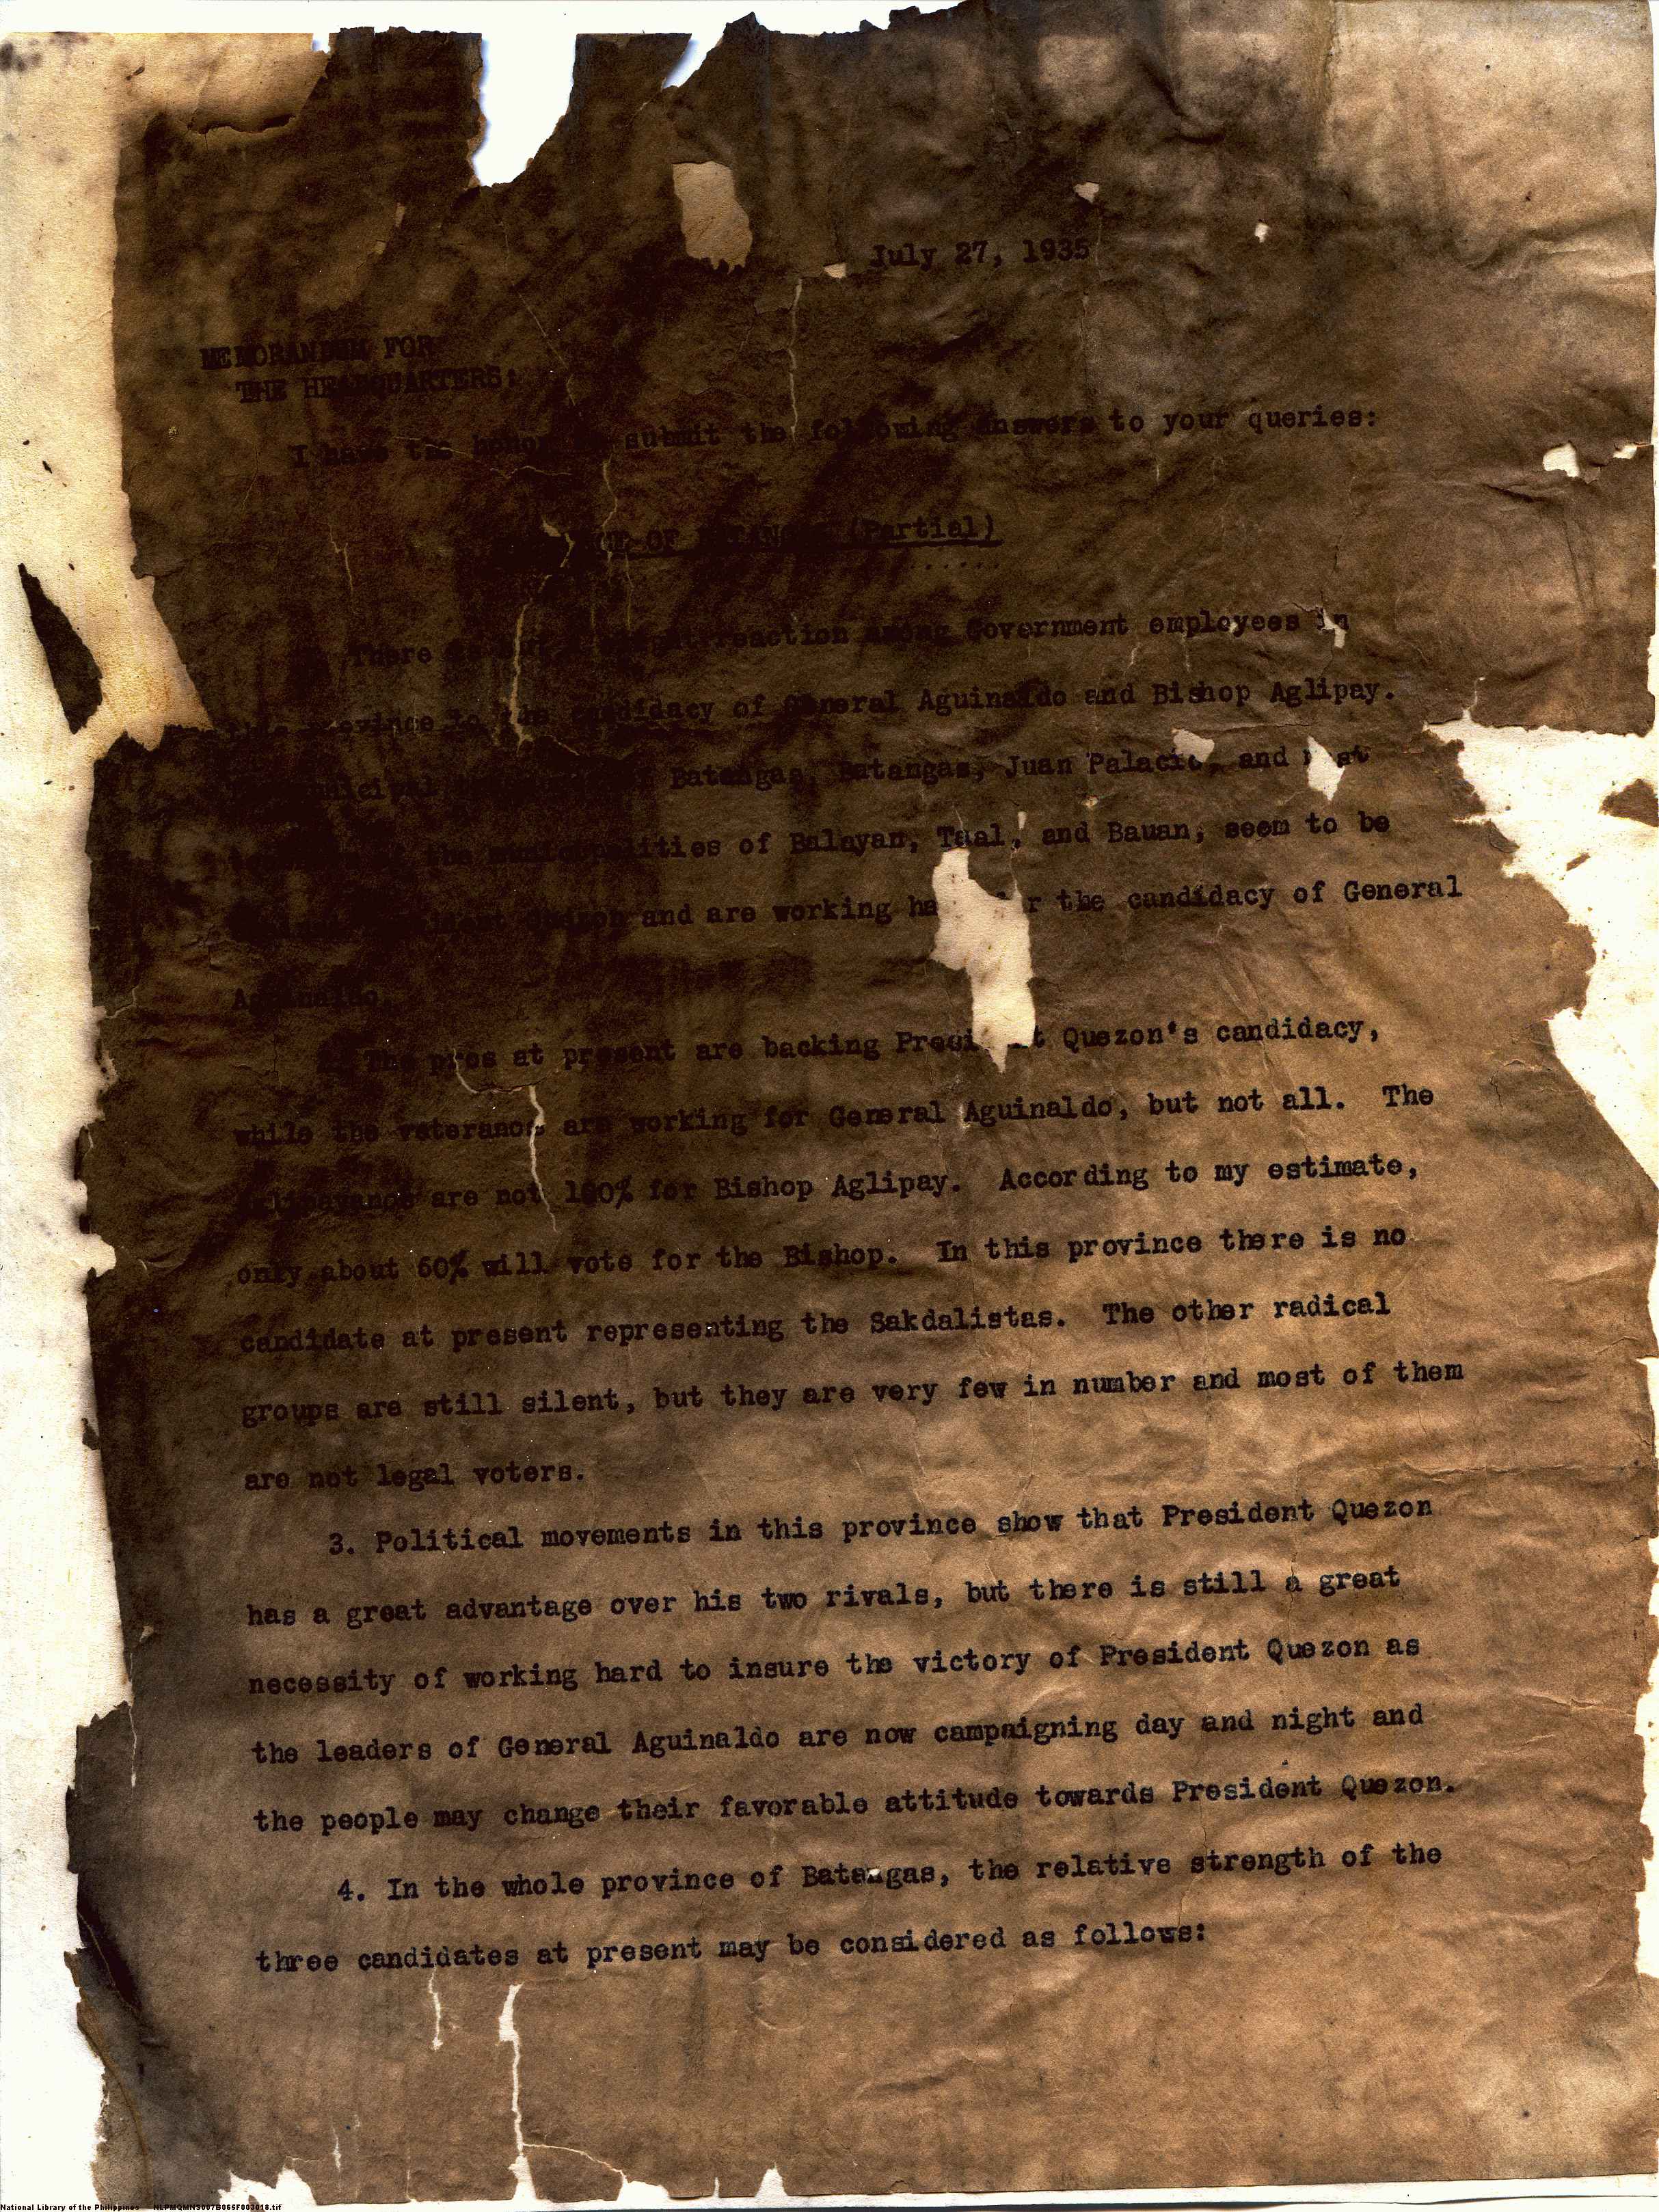 July 27, 1935
MEMORANDUM FOR
THE HEADQUARTERS:
I have the honor to submit the following answers to your queries:
OF BATANGAS (Partial)
There is reaction among Government employees in
this province to the candidacy of General Aguinaldo and Bishop Aglipay.
Batangas, Batangas, Juan Palacio, and
the municipalities of Balayan, Taal, and Bauan, seem to be
and are working the candidacy of General
Aguinaldo.
The pros at present are backing President Quezon's candidacy,
while the veteranos are working for General Aguinaldo, but not all. The
are not 100% for Bishop Aglipay. According to my estimate,
only about 60% will vote for the Bishop. In this province there is no
candidate at present representing the Sakdalistas. The other radical
groups are still silent, but they are very few in number and most of them
are not legal voters.
3. Political movements in this province show that President Quezon
has a great advantage over his two rivals, but there is still a great
necessity of working hard to insure the victory of President Quezon as
the leaders of General Aguinaldo are now campaigning day and night and
the people may change their favorable attitude towards President Quezon.
4. In the whole province of Batangas, the relative strength of the
three candidates at present may be considered as follows:
National Library of the Philippines